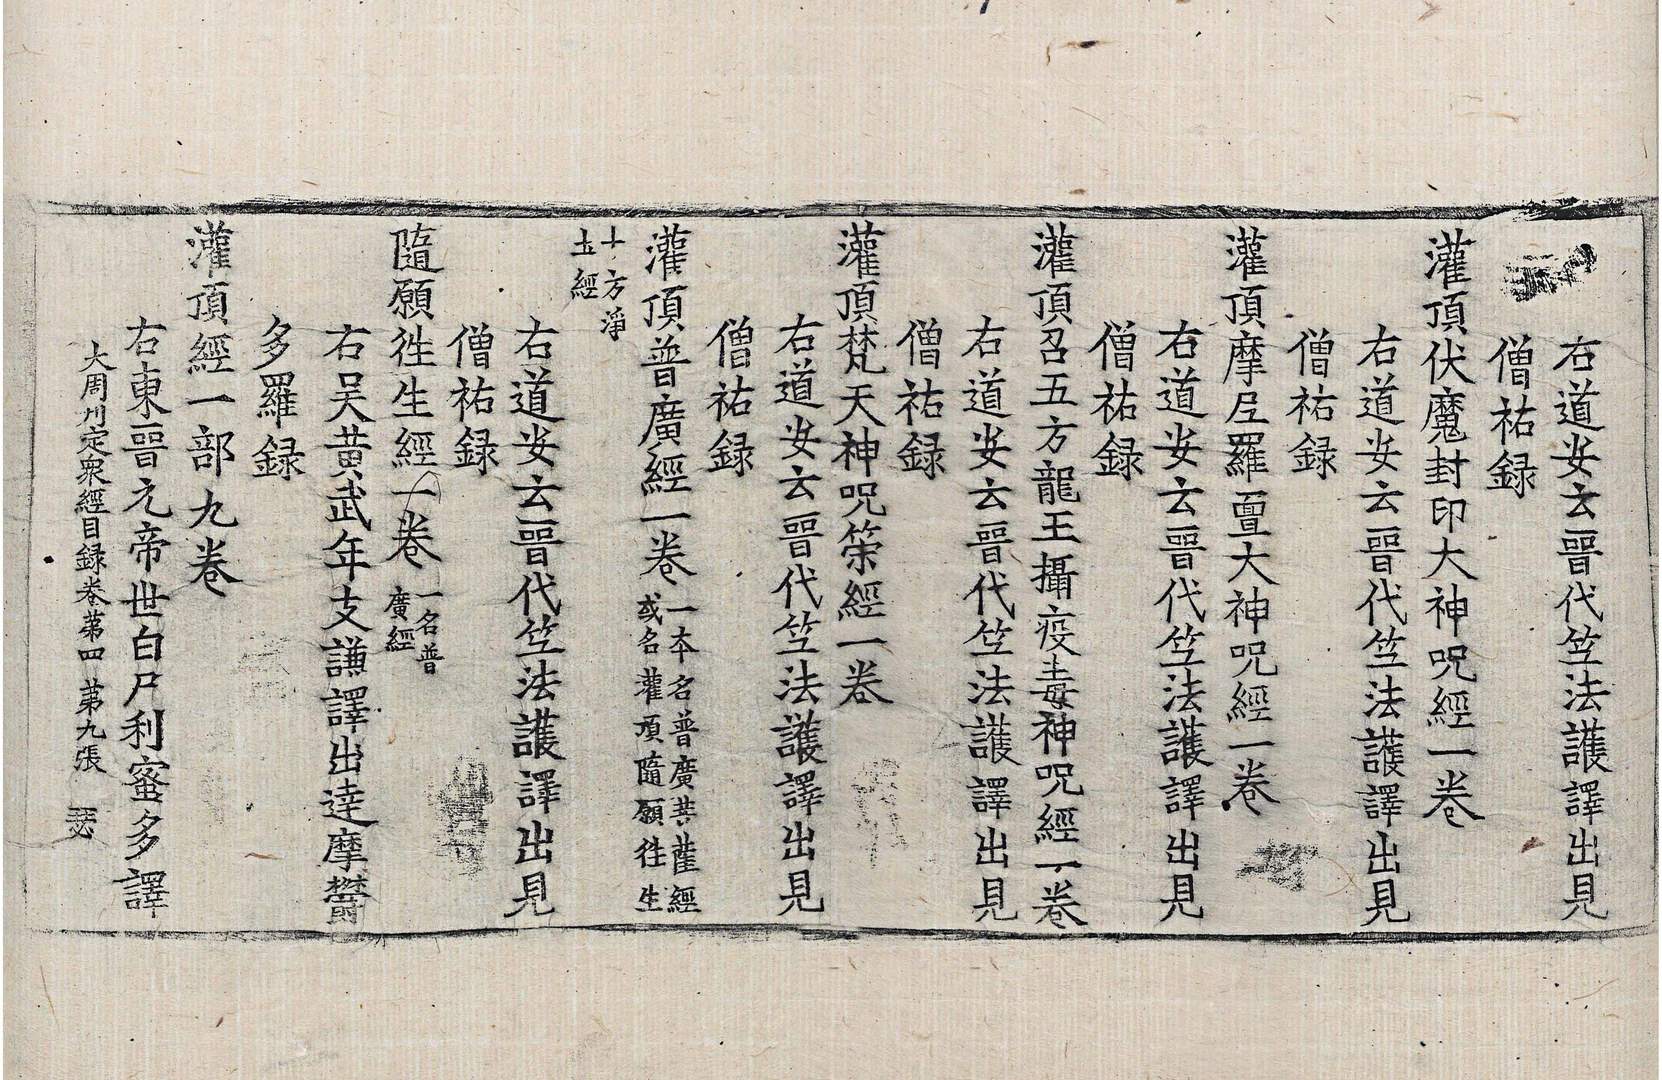 右道安云晉代竺法護譯出見
僧祐録
灌頂伏魔封印大神呪經一卷
右道安云晉代竺法護譯出見
僧祐録
灌頂摩尼羅亶大神呪經一卷
右道安云晉代竺法護譯出見
僧祐録
灌頂召五方龍王攝疫毒神呪經一卷
右道安云晉代竺法護譯出見
僧祐録
灌頂梵天神呪策經一卷
右道安云晉代竺法護譯出見
僧祐録
灌頂普廣經一卷一本名普廣菩薩經
或名灌頂隨願往生
十方淨
土經
右道安云晉代竺法護譯出見
僧祐録
隨願往生經一卷一名普
廣經
右吴黄武年支謙譯出達摩欝
多羅録
灌頂經一部九卷
右東晉元帝世白尸利蜜多譯
大周刋定衆經目録卷第四 第九張 瑟